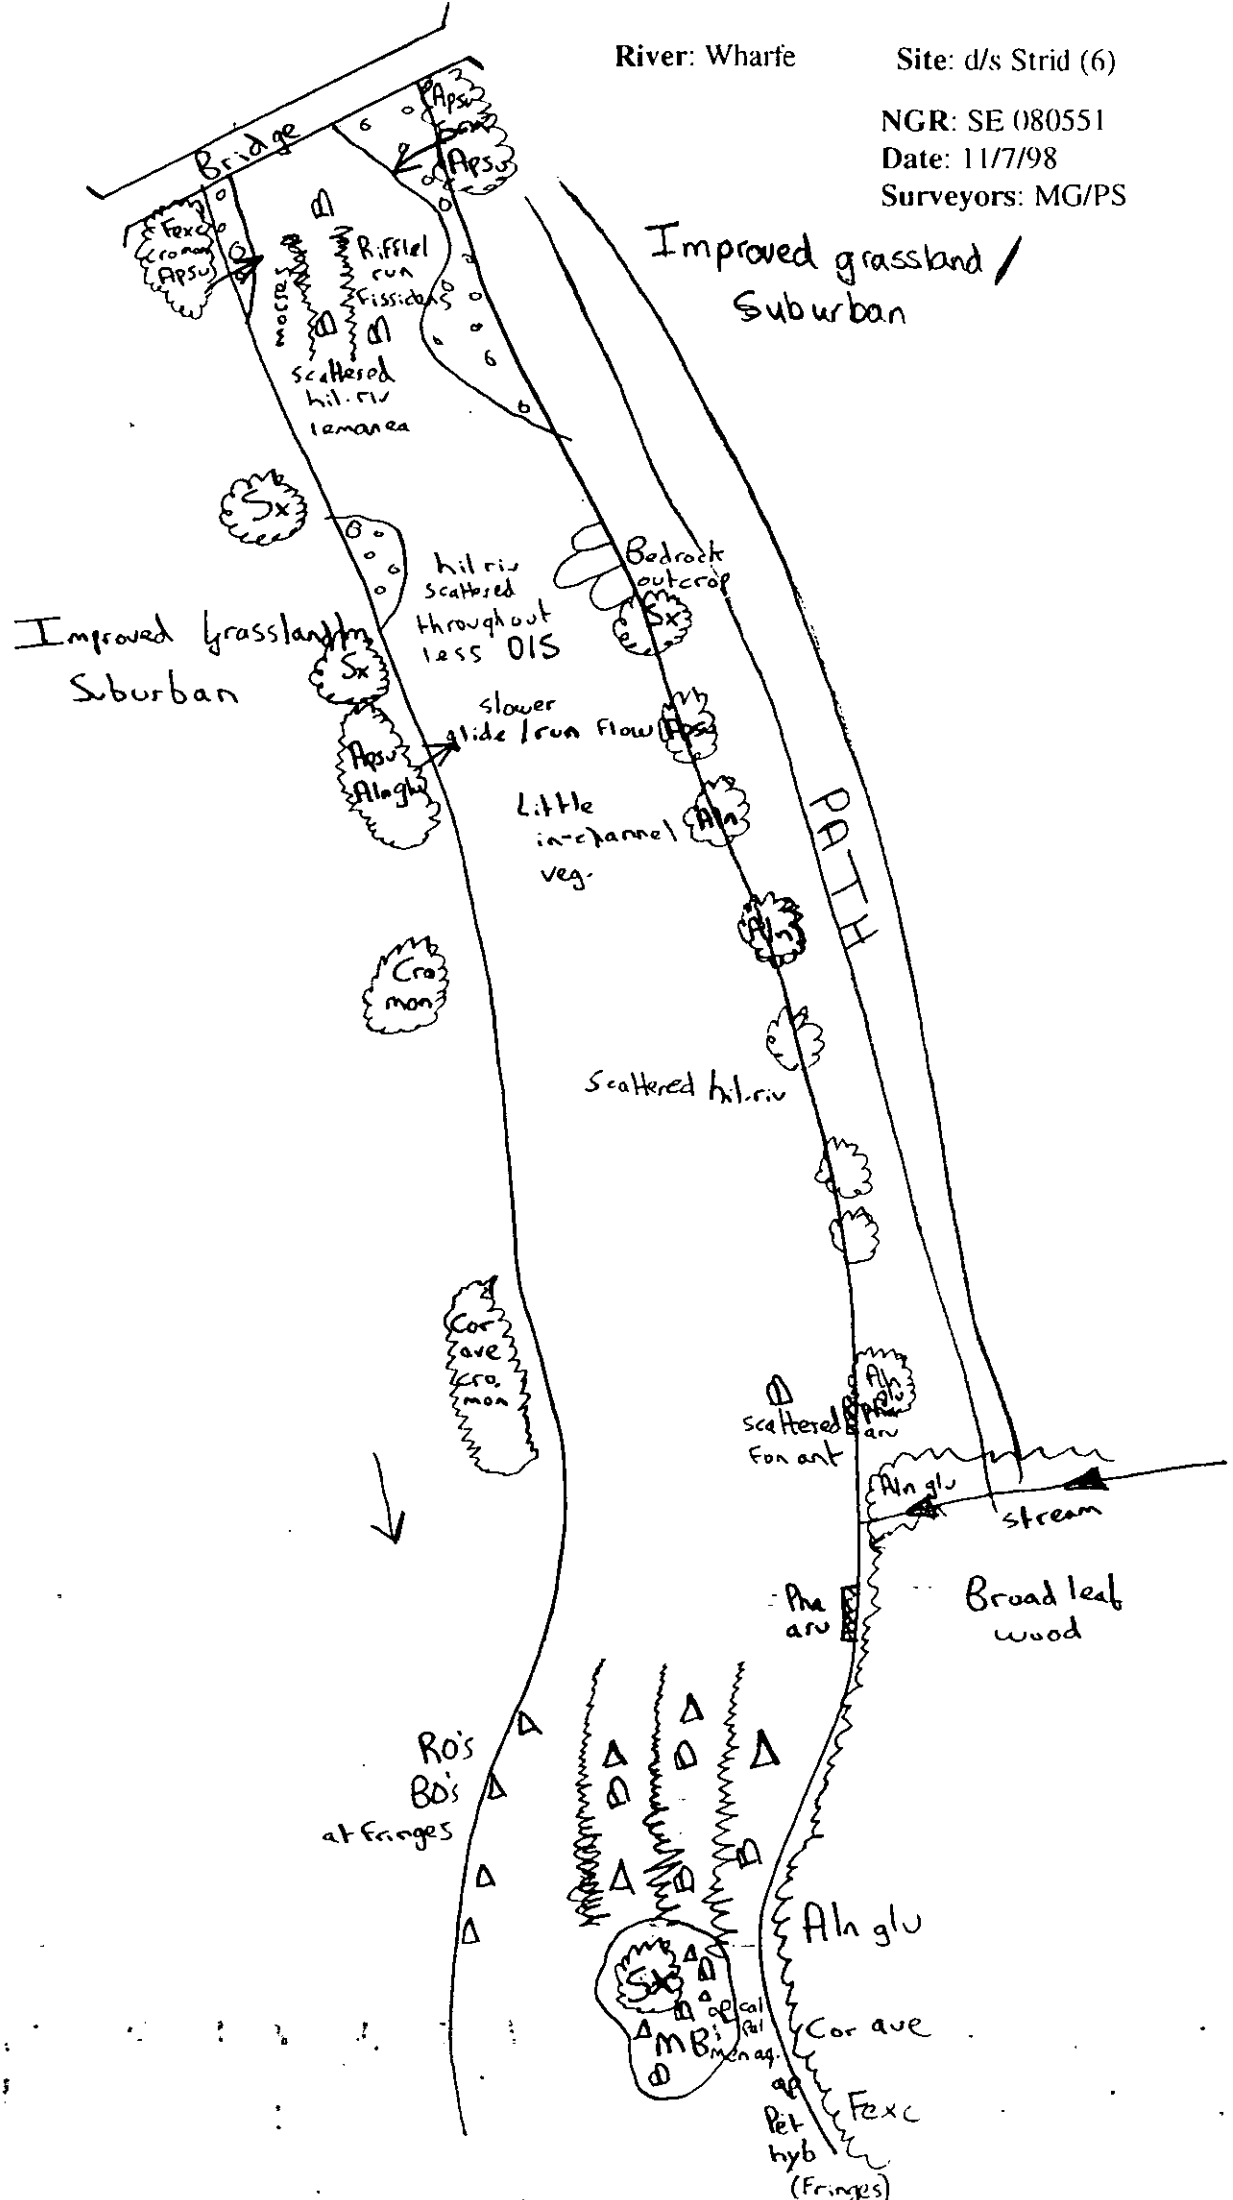 River: Wharfe
Site: d/s Strid (6)
NGR: SE 080551
Date: 11/7/98
Surveyors: MG/PS
Bridge
Apsu
Apsu
Fexc
cromon
Apsu
mosses
Riffle/
run
fissidens
scattered
hil.riv
lemanea
Improved grassland /
Suburban
Sx
hil riv
scattered
throughout
less
Bedrock
outcrop
Sx
Improved grassland
Suburban
Sx
slower
glide/run flow
Apsu
Apsu
Alnglu
Little
in-channel
veg.
Aln
PATH
Aln
Cro
mon
Scattered hil.riv
Cor
ave
cro.
mon
Aln
glu
Pha
aru
scattered
Fon ant
Aln glu
stream
Pha
aru
Broad leaf
wood
RO's
BO's
at Fringes
Aln glu
Sx
MB
Cor ave
Fexc
Pet
hyb
(Fringes)